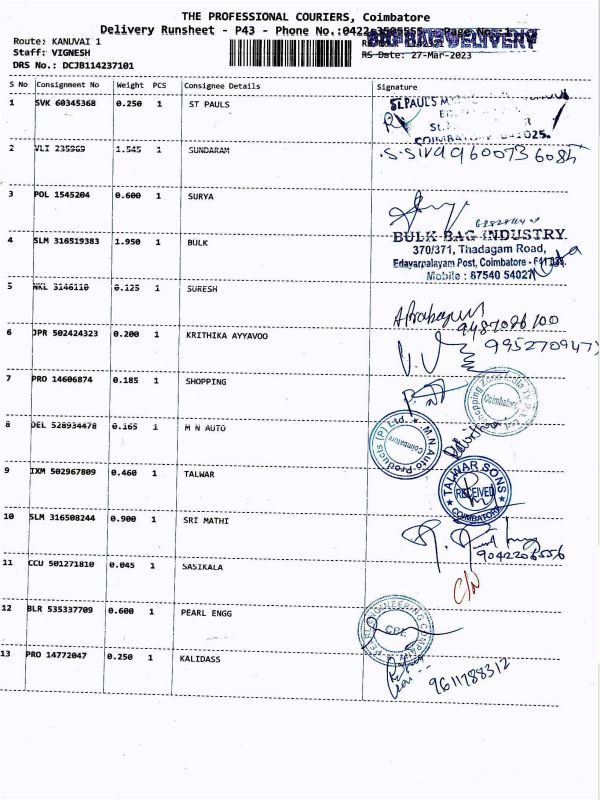 THE PROFESSIONAL COURIERS, Coimbatore
Delivery Runsheet - P43 - Phone No.:0422
BIG BAG DELIVERY
Route: KANUVAI 1
Staff: VIGNESH
RS Date: 27-Mar-2023
DRS No.: DCJB114237101
S No Consignment No Weight PCS Consignee Details Signature
1 SVK 60345368 0.250 1 ST PAULS
ST.PAULS
COIMBATORE 025.
2 VLI 235969 1.545 1 SUNDARAM
S.Siva 9600736085
3 POL 1545204 0.600 1 SURYA
4 SLM 316519383 1.950 1 BULK
BULK BAG INDUSTRY
370/371, Thadagam Road,
Edayarpalayam Post, Coimbatore -
Mobile : 87540 54027
5 NKL 3146110 0.125 1 SURESH
9487086100
6 JPR 502424323 0.200 1 KRITHIKA AYYAVOO
995270947
7 PRO 14606874 0.185 1 SHOPPING
Shopping Zone India
Coimbatore
8 DEL 528934478 0.165 1 M N AUTO
M.N.Auto Products (P) Ltd.
Coimbatore
9 IXM 502967809 0.460 1 TALWAR
TALWAR SONS
RECEIVED
COIMBATORE
10 SLM 316508244 0.900 1 SRI MATHI
9042206556
11 CCU 501271810 0.045 1 SASIKALA
12 BLR 535337709 0.600 1 PEARL ENGG
13 PRO 14772047 0.250 1 KALIDASS
9611788312